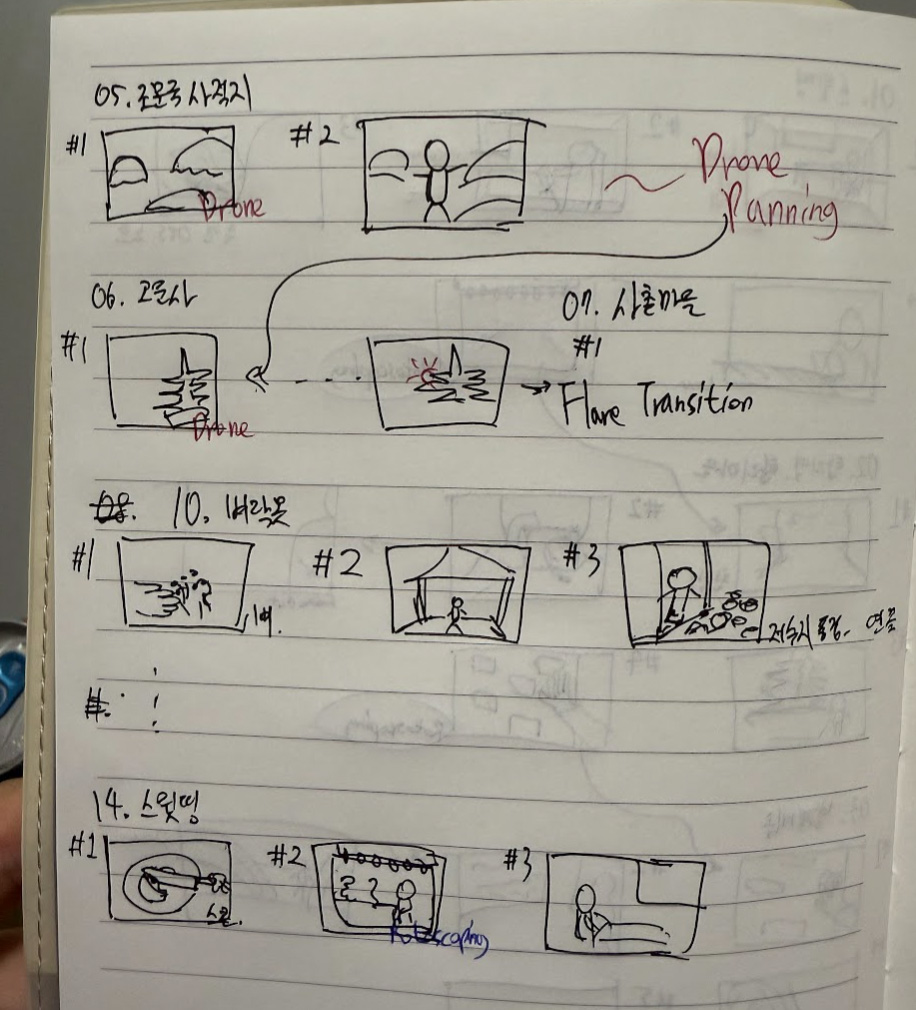 05. 조문국 사적지
#1 #2
Drone
Drone
Panning
06. 고운사
07. 사촌마을
#1
#1
Flare Transition
Drone
10. 벼락못
#1 #2 #3
저수지 풍경, 연꽃
14. 스윗띵
#1 #2 #3
Rotoscoping